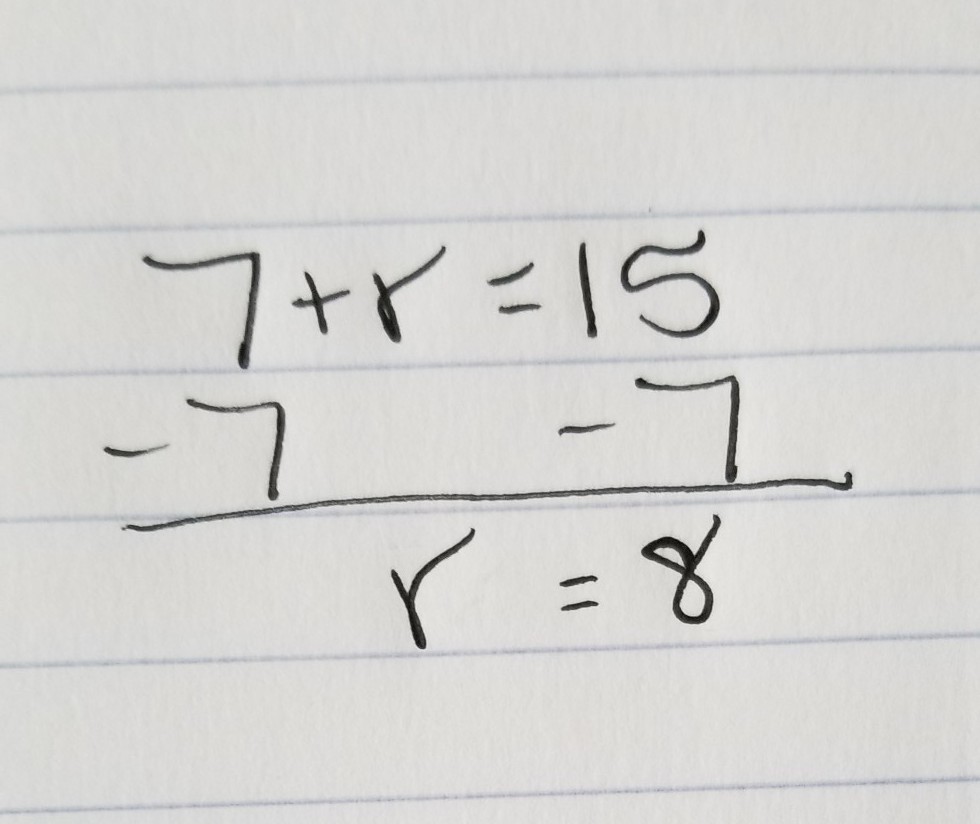 7+r=15
-7 -7
r = 8